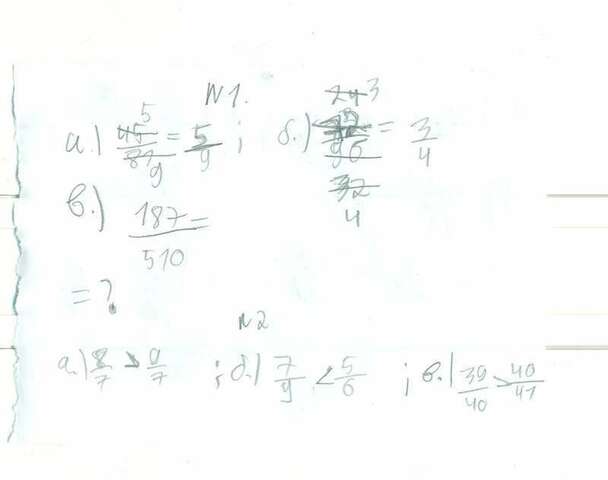 N1.
а.) 45/81 = 5/9 ; б.) 72/96 = 3/4
5 9
24 3
32 4
в.) 187/510 =
= ?
N2
а.) 8/7 > 9/7 ; б.) 7/9 < 5/6 ; в.) 39/40 > 40/41